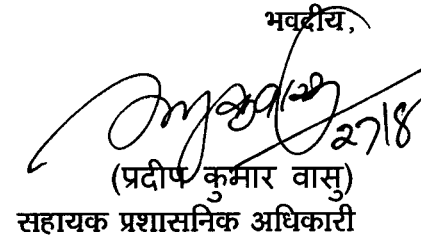 भवदीय,
27/8
(प्रदीप कुमार वासु)
सहायक प्रशासनिक अधिकारी